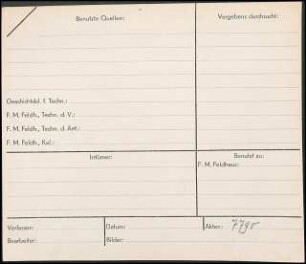 Benutzte Quellen:
Vergebens durchsucht:
Geschichtsbl. f. Techn.:
F. M. Feldh., Techn. d. V.:
F. M. Feldh., Techn. d. Ant.:
F. M. Feldh., Kal.:
Intimer:
Benutzt zu:
F. M. Feldhaus:
Verfasser:
Datum:
Akten:
Bearbeiter:
Bilder: